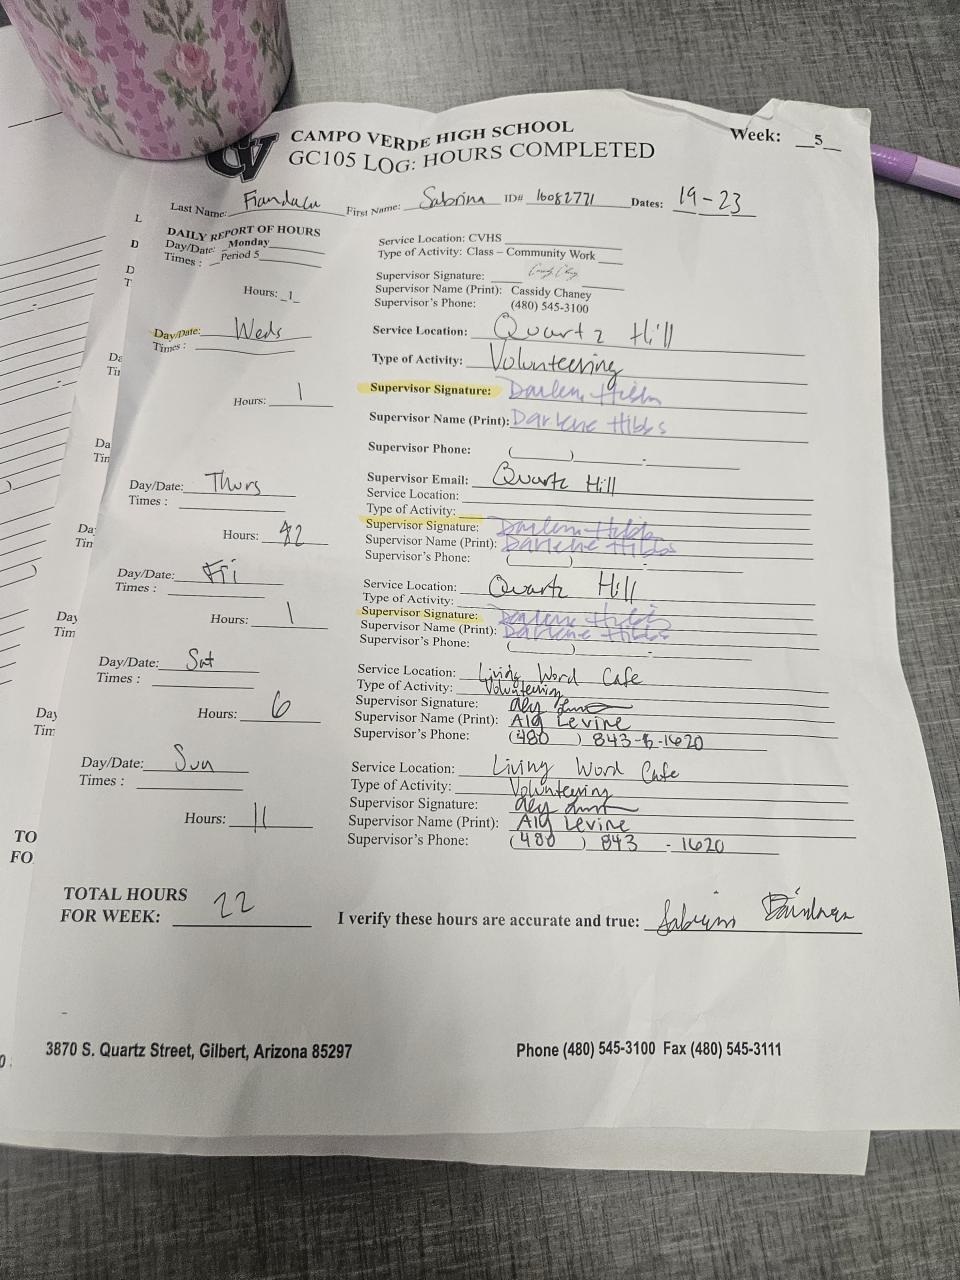 CAMPO VERDE HIGH SCHOOL
GC105 LOG: HOURS COMPLETED
Week: 5
CV
Last Name: First Name: Sabrina ID# 16082771 Dates: 19-23
DAILY REPORT OF HOURS
Day/Date: Monday
Times: Period 5
Hours: 1
Service Location: CVHS
Type of Activity: Class – Community Work
Supervisor Signature:
Supervisor Name (Print): Cassidy Chaney
Supervisor's Phone: (480) 545-3100
Day/Date: Weds
Times:
Hours: 1
Service Location: Quartz Hill
Type of Activity: Volunteering
Supervisor Signature: Darlene Hibbs
Supervisor Name (Print): Darlene Hibbs
Supervisor Phone: ( ) -
Supervisor Email: Quartz Hill
Day/Date: Thurs
Times:
Hours: 2
Service Location:
Type of Activity:
Supervisor Signature: Darlene Hibbs
Supervisor Name (Print): Darlene Hibbs
Supervisor's Phone: ( ) -
Day/Date: Fri
Times:
Hours: 1
Service Location: Quartz Hill
Type of Activity:
Supervisor Signature: Darlene Hibbs
Supervisor Name (Print): Darlene Hibbs
Supervisor's Phone: ( ) -
Day/Date: Sat
Times:
Hours: 6
Service Location: Living Word Cafe
Type of Activity: Volunteering
Supervisor Signature: Aly
Supervisor Name (Print): Aly Levine
Supervisor's Phone: (480) 843-1620
Day/Date: Sun
Times:
Hours: 11
Service Location: Living Word Cafe
Type of Activity: Volunteering
Supervisor Signature: Aly
Supervisor Name (Print): Aly Levine
Supervisor's Phone: (480) 843 - 1620
TOTAL HOURS
FOR WEEK: 22
I verify these hours are accurate and true: Sabrina
3870 S. Quartz Street, Gilbert, Arizona 85297
Phone (480) 545-3100 Fax (480) 545-3111